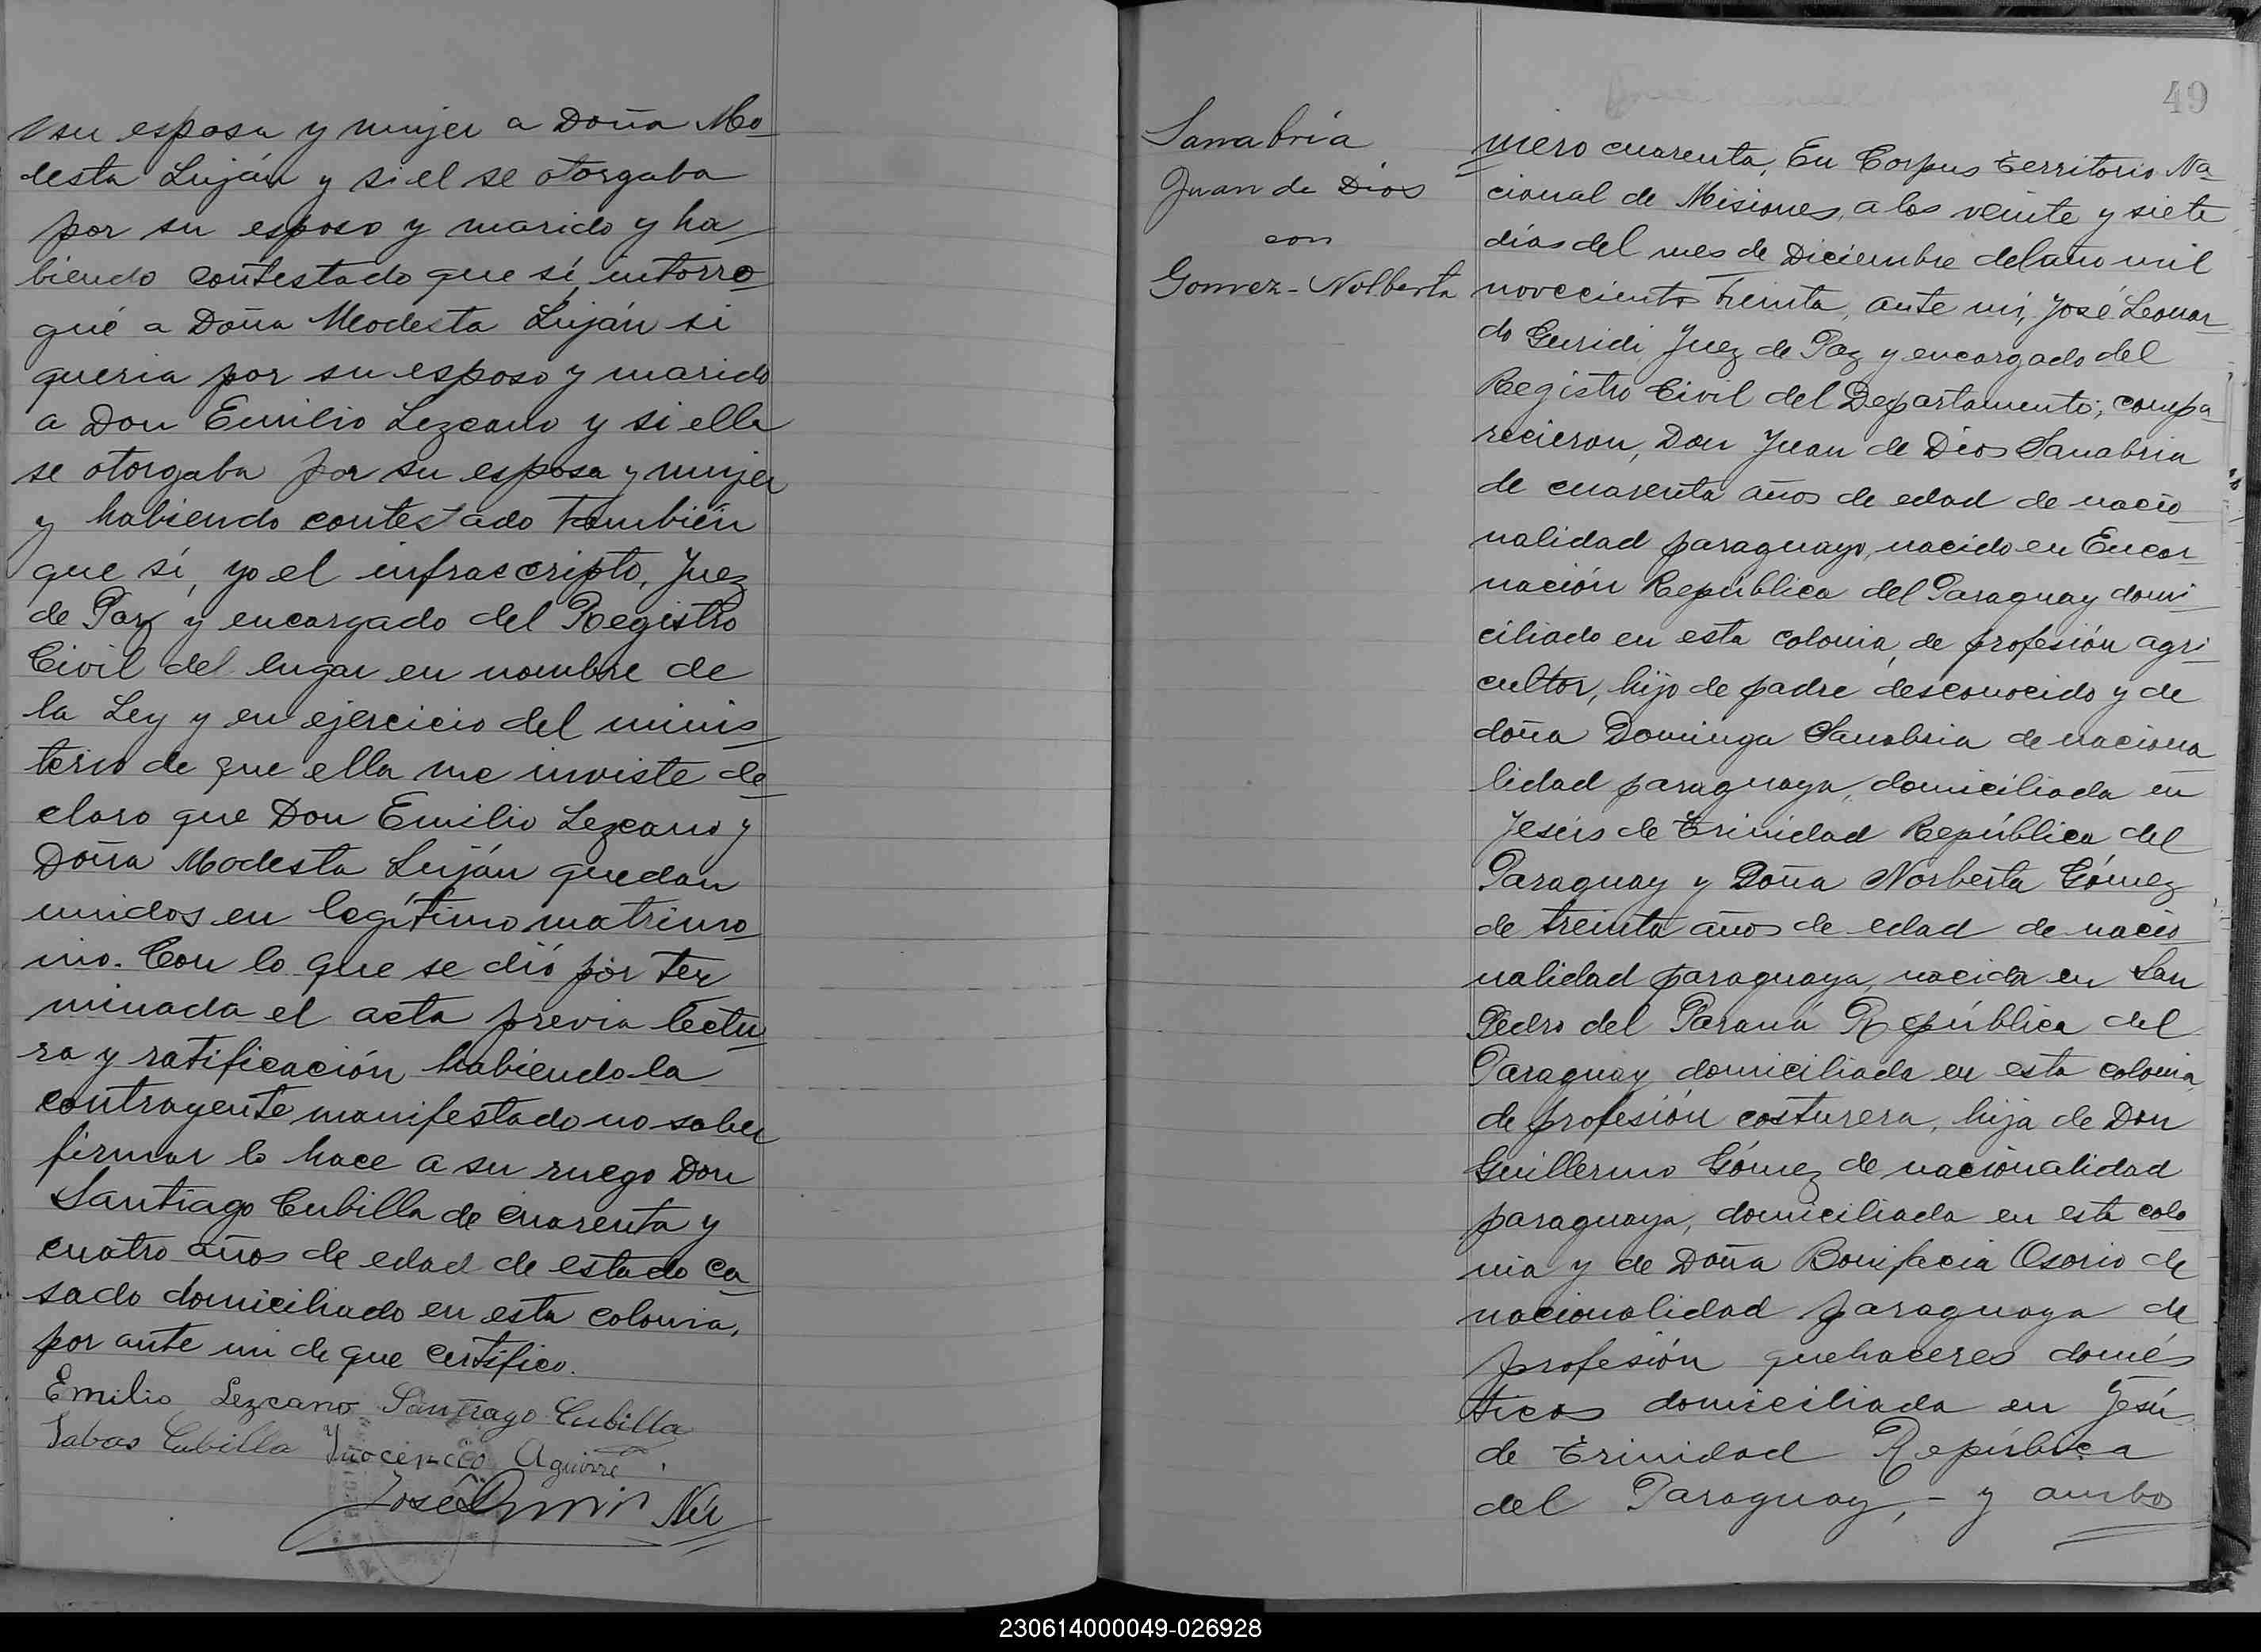 su esposa y mujer a Doña Mo
desta Luján y si el se otorgaba
por su esposo y marido y ha
biendo contestado que sí, intorro
gué a Doña Modesta Luján si
queria por su esposo y marido
a Don Emilio Lezcano y si ella
se otorgaba por su esposa y mujer
y habiendo contestado también
que sí, yo el infrascripto, Juez
de Paz y encargado del Registro
Civil del lugar en nombre de
la Ley y en ejercicio del minis
terio de que ella me inviste de
claro que Don Emilio Lezcano y
Doña Modesta Luján quedan
unidos en legítimo matrimo
nio. Con lo que se dió por ter
minada el acta previa lectu
ra y ratificación habiendo la
contrayente manifestado no saber
firmar lo hace a su ruego Don
Santiago Cubilla de cuarenta y
cuatro años de edad de estado ca
sado domiciliado en esta colonia,
por ante mi de que certifico.
Emilio Lezcano Santiago Cubilla
Sabas Cubilla Inocencio Aguirre
José
49
Sanabria
Juan de Dios
con
Gomez - Nolberta
mero cuarenta, En Corpus Territorio Na
cional de Misiones, a los veinte y siete
días del mes de Diciembre del año mil
novecientos treinta, ante mí, José Leonar
do Guridi Juez de Paz y encargado del
Registro Civil del Departamento; compa
recieron, Don Juan de Dios Sanabria
de cuarenta años de edad de nacio
nalidad paraguayo, nacido en Encar
nación República del Paraguay domi
ciliado en esta colonia, de profesión agri
cultor, hijo de padre desconocido y de
doña Dominga Sanabria de naciona
lidad paraguaya, domiciliada en
Jesús de Trinidad República del
Paraguay y Doña Norberta Gómez
de treinta años de edad de nacio
nalidad paraguaya, nacida en San
Pedro del Paraná República del
Paraguay domiciliada en esta colonia,
de profesión costurera, hija de Don
Guillermo Gómez de nacionalidad
paraguaya, domiciliada en esta colo
nia y de Doña Bonifacia Osorio de
nacionalidad paraguaya de
profesión quehaceres domés
ticos domiciliada en Jesús
de Trinidad República
del Paraguay, - y ambos
230614000049-026928